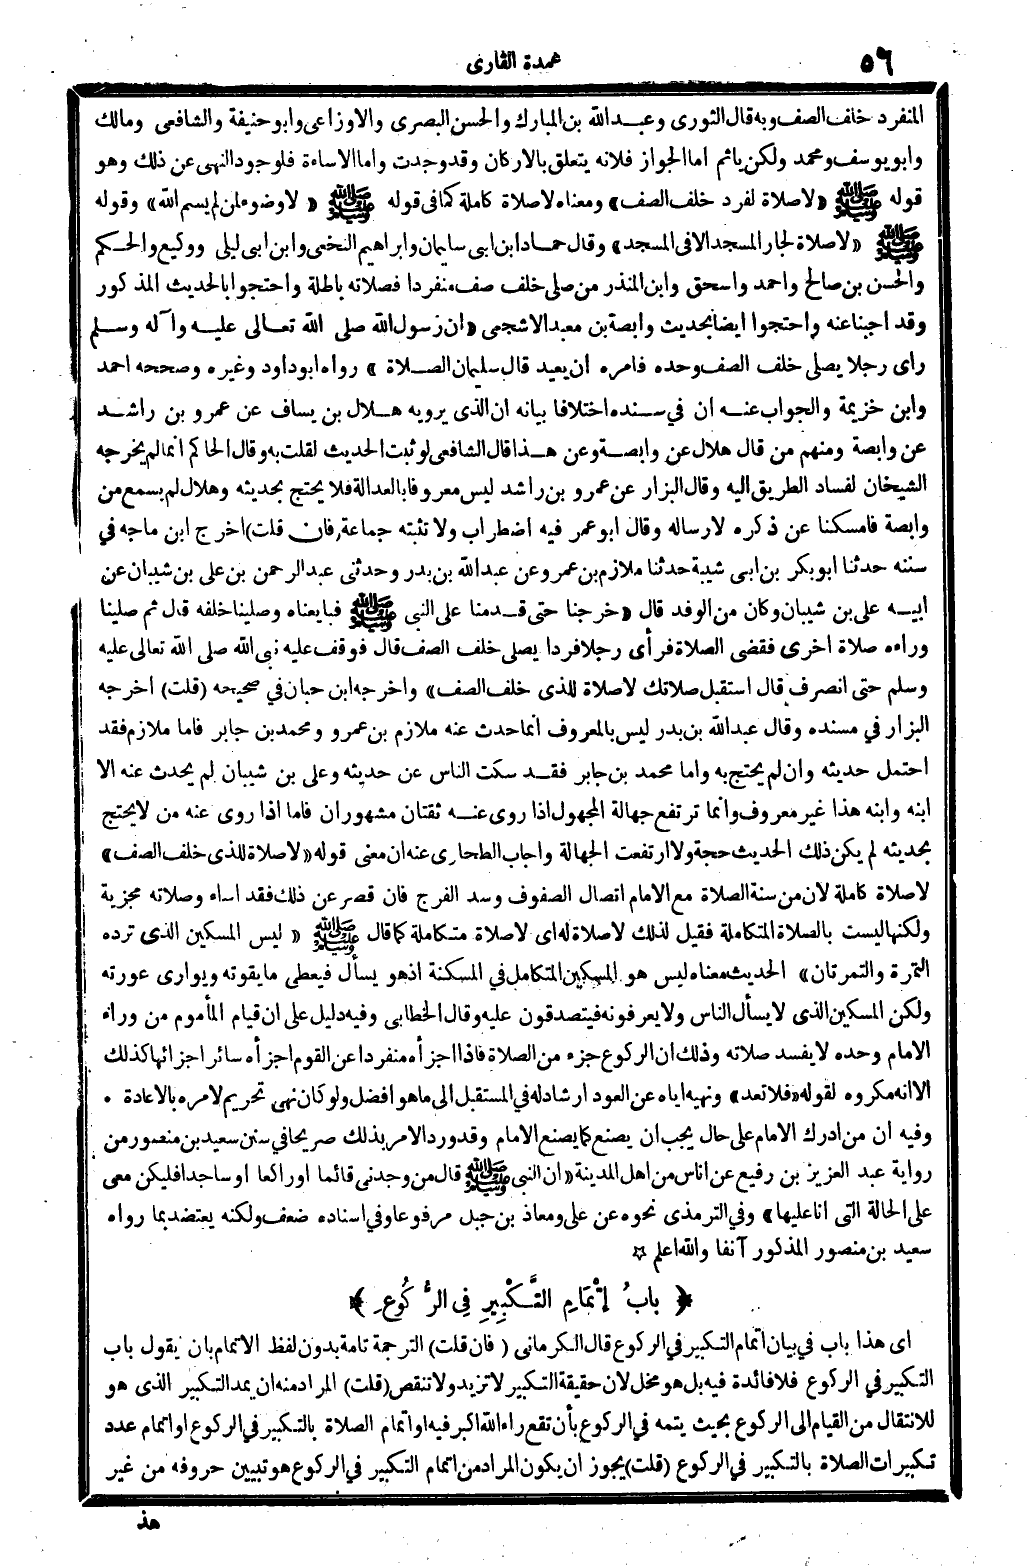 ٥٦
عمدة القارى
المنفرد خلف الصف وبه قال الثورى وعبد الله بن المبارك والحسن البصرى والاوزاعى وابو حنيفة والشافعى ومالك
وابو يوسف ومحمد ولكن ياثم اما الجواز فلانه يتعلق بالاركان وقد وجدت واما الاساءة فلوجود النهى عن ذلك وهو
قوله ﷺ «لا صلاة لفرد خلف الصف» ومعناه لا صلاة كاملة كما فى قوله ﷺ « لا وضوء لمن لم يسم الله» وقوله
ﷺ «لا صلاة لجار المسجد الا فى المسجد» وقال حماد ابن ابى سليمان وابراهيم النخعى وابن ابى ليلى ووكيع والحكم
والحسن بن صالح واحمد واسحق وابن المنذر من صلى خلف صف منفردا فصلاته باطلة واحتجوا بالحديث المذكور
وقد اجبنا عنه واحتجوا ايضا بحديث وابصة بن معبد الاشجعى «ان رسول الله صلى الله تعالى عليه وآله وسلم
راى رجلا يصلى خلف الصف وحده فامره ان يعيد قال سليمان الصلاة » رواه ابو داود وغيره وصححه احمد
وابن خزيمة والجواب عنه ان في سنده اختلافا بيانه ان الذى يرويه هلال بن يساف عن عمرو بن راشد
عن وابصة ومنهم من قال هلال عن وابصة وعن هذا قال الشافعى لو ثبت الحديث لقلت به وقال الحاكم انما لم يخرجه
الشيخان لفساد الطريق اليه وقال البزار عن عمرو بن راشد ليس معروفا بالعدالة فلا يحتج بحديثه وهلال لم يسمع من
وابصة فامسكنا عن ذكره لارساله وقال ابو عمر فيه اضطراب ولا تثبته جماعة (فان قلت) اخرج ابن ماجه في
سننه حدثنا ابو بكر بن ابى شيبة حدثنا ملازم بن عمرو عن عبد الله بن بدر وحدثنى عبد الرحمن بن على بن شيبان عن
ابيه على بن شيبان وكان من الوفد قال «خرجنا حتى قدمنا على النبى ﷺ فبايعناه وصلينا خلفه قال ثم صلينا
وراءه صلاة اخرى فقضى الصلاة فرأى رجلا فردا يصلى خلف الصف قال فوقف عليه نبى الله صلى الله تعالى عليه
وسلم حتى انصرف قال استقبل صلاتك لا صلاة للذى خلف الصف» واخرجه ابن حبان في صحيحه (قلت) اخرجه
البزار في مسنده وقال عبد الله بن بدر ليس بالمعروف انما حدث عنه ملازم بن عمرو ومحمد بن جابر فاما ملازم فقد
احتمل حديثه وان لم يحتج به واما محمد بن جابر فقد سكت الناس عن حديثه وعلى بن شيبان لم يحدث عنه الا
ابنه وابنه هذا غير معروف وانما ترتفع جهالة المجهول اذا روى عنه ثقتان مشهوران فاما اذا روى عنه من لا يحتج
بحديثه لم يكن ذلك الحديث حجة ولا ارتفعت الجهالة واجاب الطحارى عنه ان معنى قوله «لا صلاة للذى خلف الصف»
لا صلاة كاملة لان من سنة الصلاة مع الامام اتصال الصفوف وسد الفرج فان قصر عن ذلك فقد اساء وصلاته مجزية
ولكنها ليست بالصلاة المتكاملة فقيل لذلك لا صلاة له اى لا صلاة متكاملة كما قال ﷺ « ليس المسكين الذى ترده
التمرة والتمرتان» الحديث معناه ليس هو المسكين المتكامل في المسكنة اذ هو يسأل فيعطى ما يقوته ويوارى عورته
ولكن المسكين الذى لا يسأل الناس ولا يعرفونه فيتصدقون عليه وقال الخطابى وفيه دليل على ان قيام المأموم من وراء
الامام وحده لا يفسد صلاته وذلك ان الركوع جزء من الصلاة فاذا اجزأه منفردا عن القوم اجزأه سائر اجزائها كذلك
الا انه مكروه لقوله «فلا تعد» ونهيه اياه عن العود ارشاد له في المستقبل الى ما هو افضل ولو كان نهى تحريم لامره بالاعادة •
وفيه ان من ادرك الامام على حال يجب ان يصنع كما يصنع الامام وقد ورد الامر بذلك صريحا في سنن سعيد بن منصور من
رواية عبد العزيز بن رفيع عن اناس من اهل المدينة «ان النبى ﷺ قال من وجدنى قائما او راكعا او ساجدا فليكن معى
على الحالة التى انا عليها» وفي الترمذى نحوه عن على ومعاذ بن جبل مرفوعا وفي اسناده ضعف ولكنه يعتضد بما رواه
سعيد بن منصور المذكور آنفا والله اعلم ☆
﴿ بابُ إتْمَامِ التَّكْبِيرِ فِى الرُّكُوعِ ﴾
اى هذا باب في بيان اتمام التكبير في الركوع قال الكرمانى ( فان قلت) الترجمة تامة بدون لفظ الاتمام بان يقول باب
التكبير في الركوع فلا فائدة فيه بل هو مخل لان حقيقة التكبير لا تزيد ولا تنقص (قلت) المراد منه ان يمد التكبير الذى هو
للانتقال من القيام الى الركوع بحيث يتمه في الركوع بأن تقع راء الله اكبر فيه او اتمام الصلاة بالتكبير في الركوع او اتمام عدد
تكبيرات الصلاة بالتكبير في الركوع (قلت) يجوز ان يكون المراد من اتمام التكبير في الركوع هو تبيين حروفه من غير
هذ